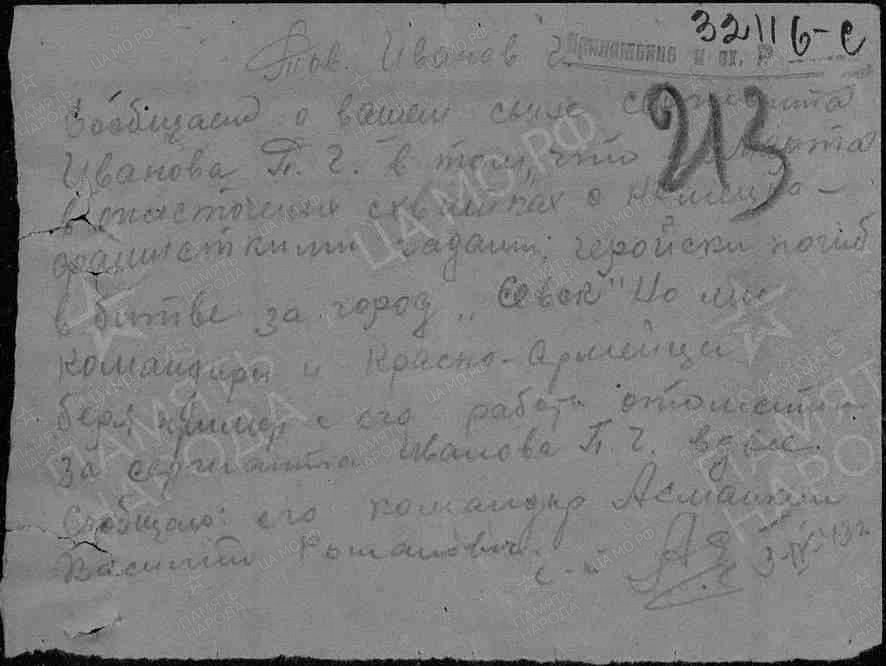 32116-с
Тов. Иванов Г.
213
Сообщаем о вашем сыне сержанта
Иванова П. Г. в том, что
в схватках с немецко-
фашисткими гадами, геройски погиб
в битве за город „Севск" Но мы
командиры и Красно-Армейци
беря пример с его работы отомстим
за сержанта Иванова П. Г. вдвое.
Сообщаю его командир
Василий
3 IV-43г.
ПАМЯТЬ НАРОДА
ЦАМО.РФ